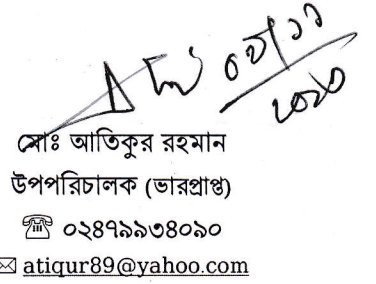 মোঃ আতিকুর রহমান
উপপরিচালক (ভারপ্রাপ্ত)
☎ ০২৪৭৯৯৩৪০৯০
✉ atiqur89@yahoo.com